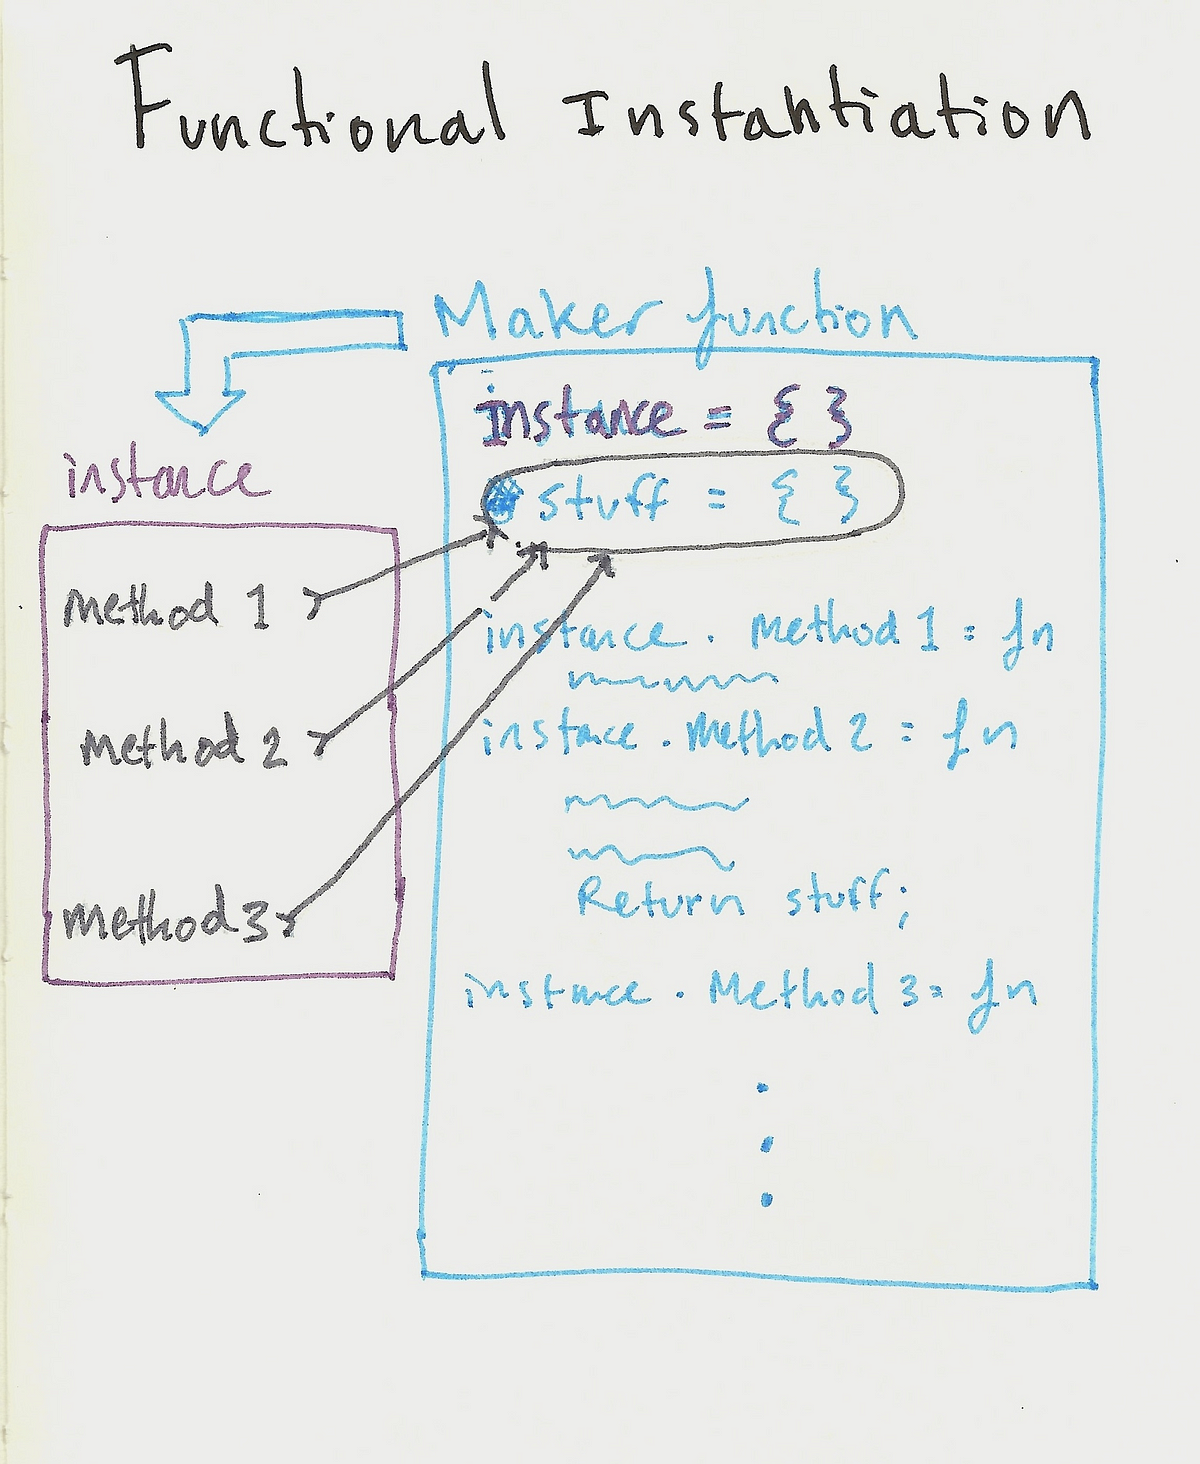 Functional Instantiation
Maker function
instance = { }
stuff = { }
instance . Method 1 = fn
instance . Method 2 = fn
Return stuff;
instance . Method 3 = fn
instance
method 1
method 2
method 3